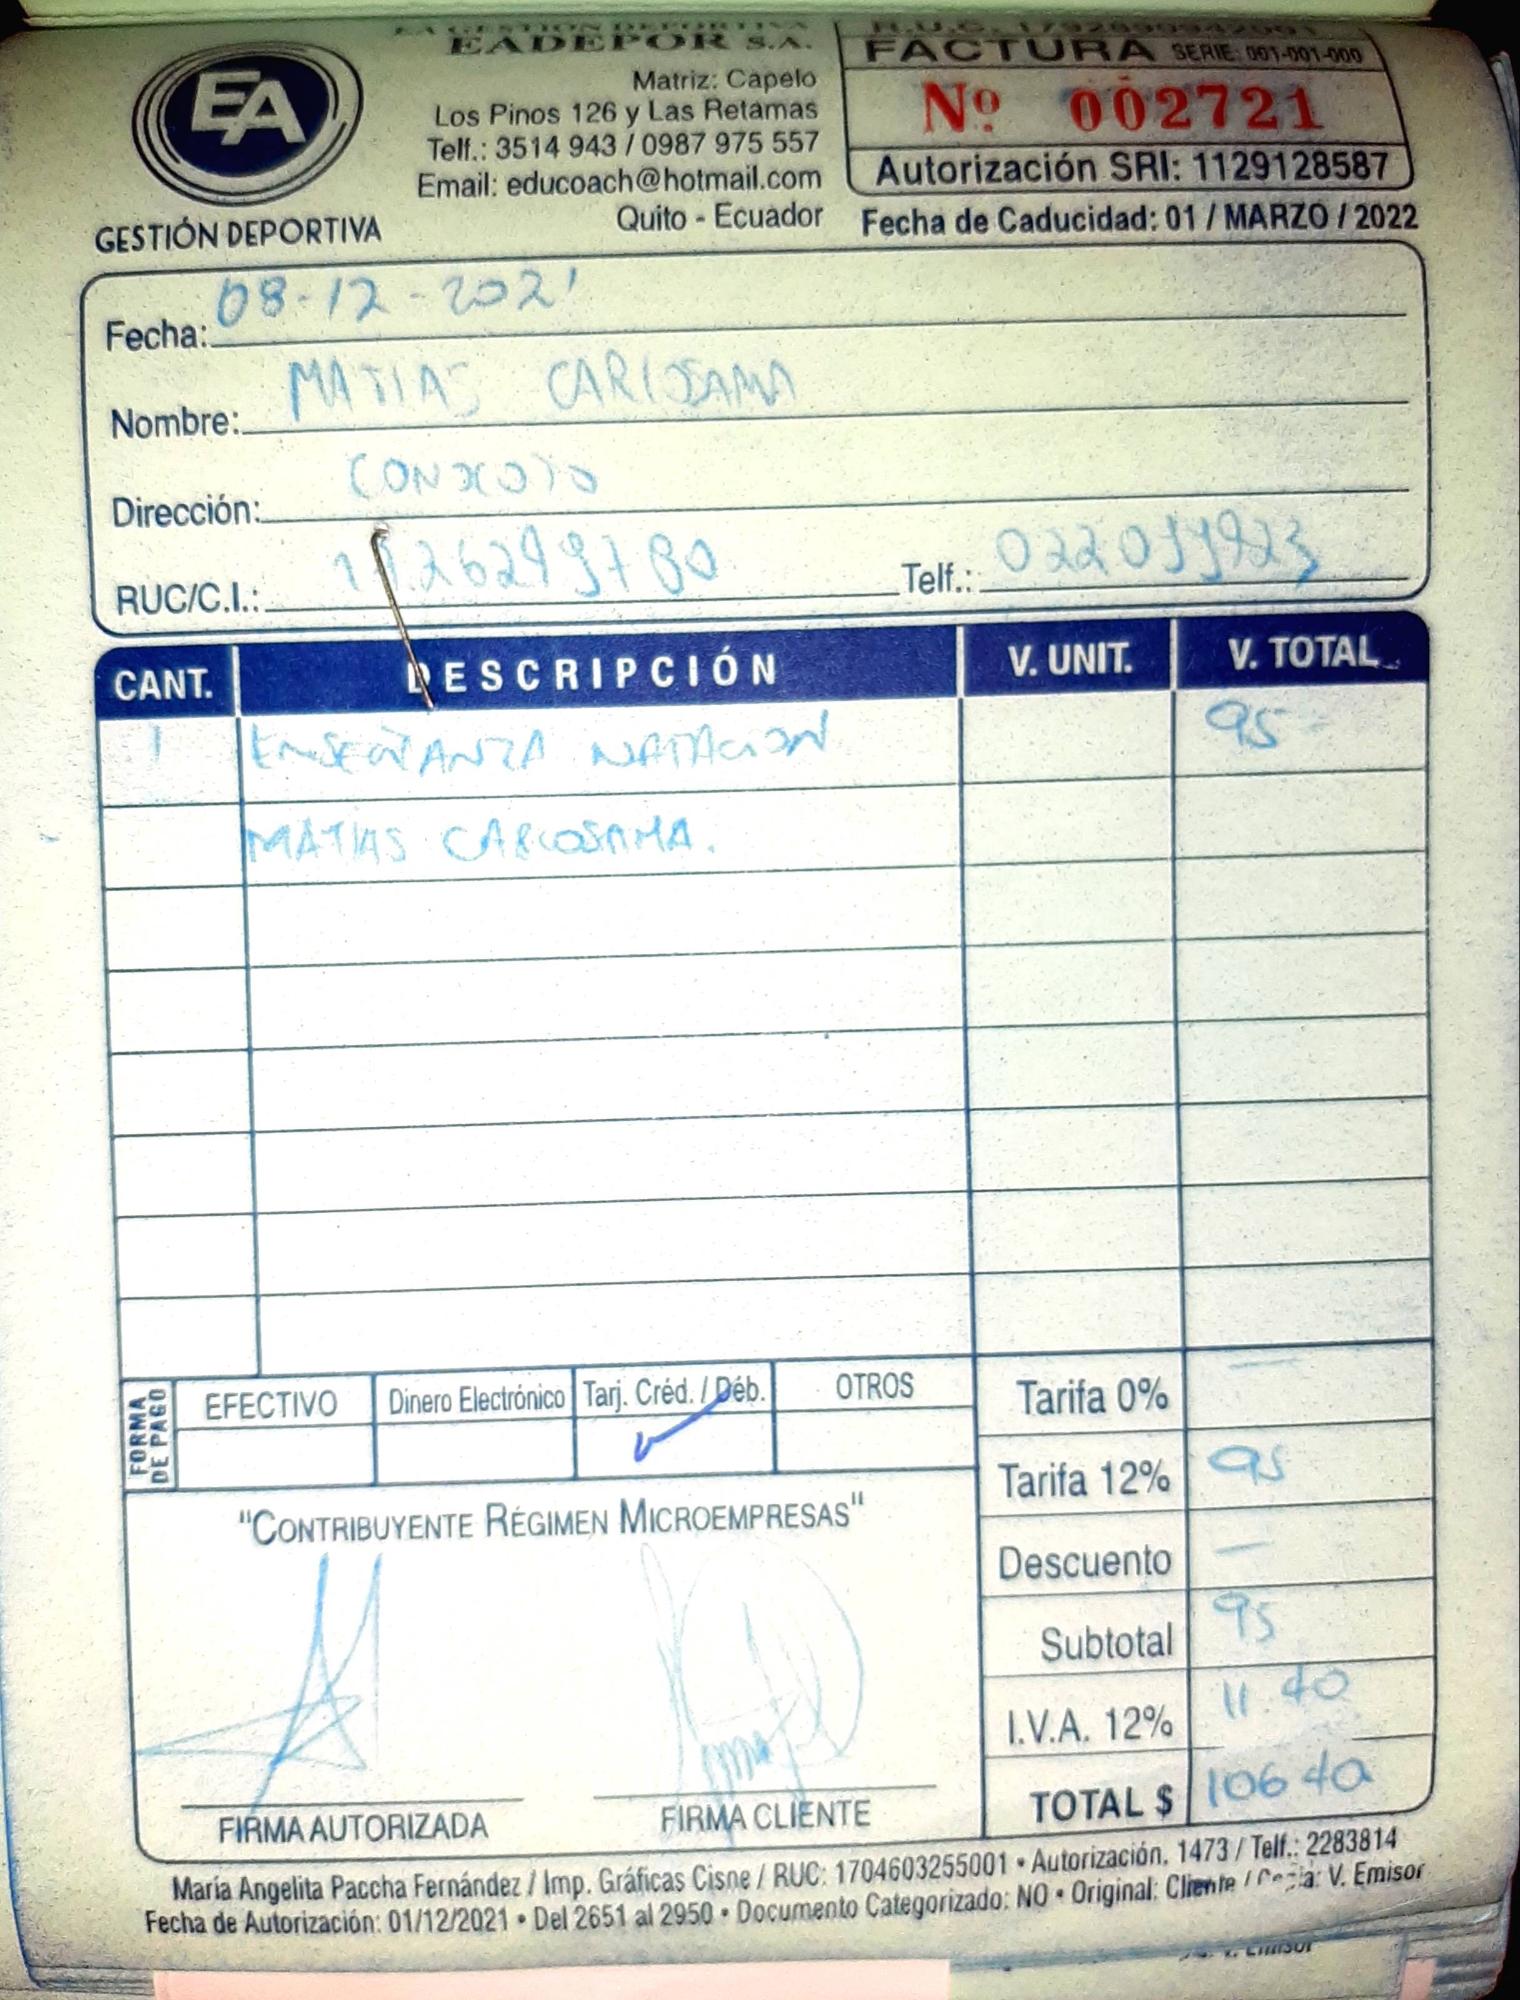 EA GESTIÓN DEPORTIVA
EADEPOR S.A.
Matriz: Capelo
Los Pinos 126 y Las Retamas
Telf.: 3514 943 / 0987 975 557
Email: educoach@hotmail.com
Quito - Ecuador
EA
GESTIÓN DEPORTIVA
FACTURA SERIE: 001-001-000
Nº 002721
Autorización SRI: 1129128587
Fecha de Caducidad: 01 / MARZO / 2022
Fecha: 08-12-2021
Nombre: MATIAS
Dirección:
RUC/C.I.: Telf.:
CANT. DESCRIPCIÓN V. UNIT. V. TOTAL
1 ENSEÑANZA NATACION 95
MATIAS CARLOSAMA.
FORMA DE PAGO
EFECTIVO Dinero Electrónico Tarj. Créd. / Déb. OTROS
Tarifa 0% —
Tarifa 12% 95
Descuento —
Subtotal 95
I.V.A. 12% 11.40
TOTAL $ 106 40
"CONTRIBUYENTE RÉGIMEN MICROEMPRESAS"
FIRMA AUTORIZADA FIRMA CLIENTE
María Angelita Paccha Fernández / Imp. Gráficas Cisne / RUC: 1704603255001 • Autorización. 1473 / Telf.: 2283814
Fecha de Autorización: 01/12/2021 • Del 2651 al 2950 • Documento Categorizado: NO • Original: Cliente / Copia: V. Emisor
V. Emisor